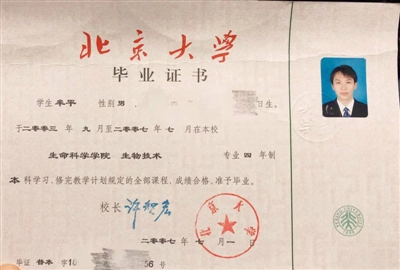 北京大学
毕业证书
学生 牟平 性别 男, 日生。
于二〇〇三年 九月至二〇〇七年 七月在本校
生命科学学院 生物技术 专业 四 年制
本 科学习, 修完教学计划规定的全部课程, 成绩合格, 准予毕业。
校长 许智宏
北京大学
二〇〇七年 七月 一 日
毕证 普本 字10 56 号